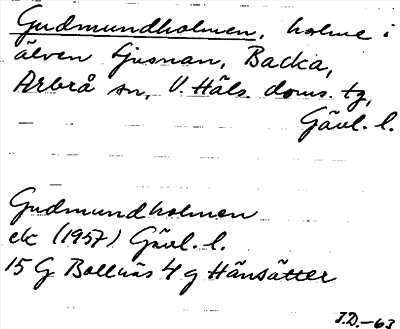 Gudmundholmen, holme i
älven Ljusnan, Backa,
Arbrå sn, V. Häls. doms. tg,
Gävl. l.
Gudmundholmen
ek (1957) Gävl. l.
15 G Bollnäs 4 g Hänsätter
J.D.-63